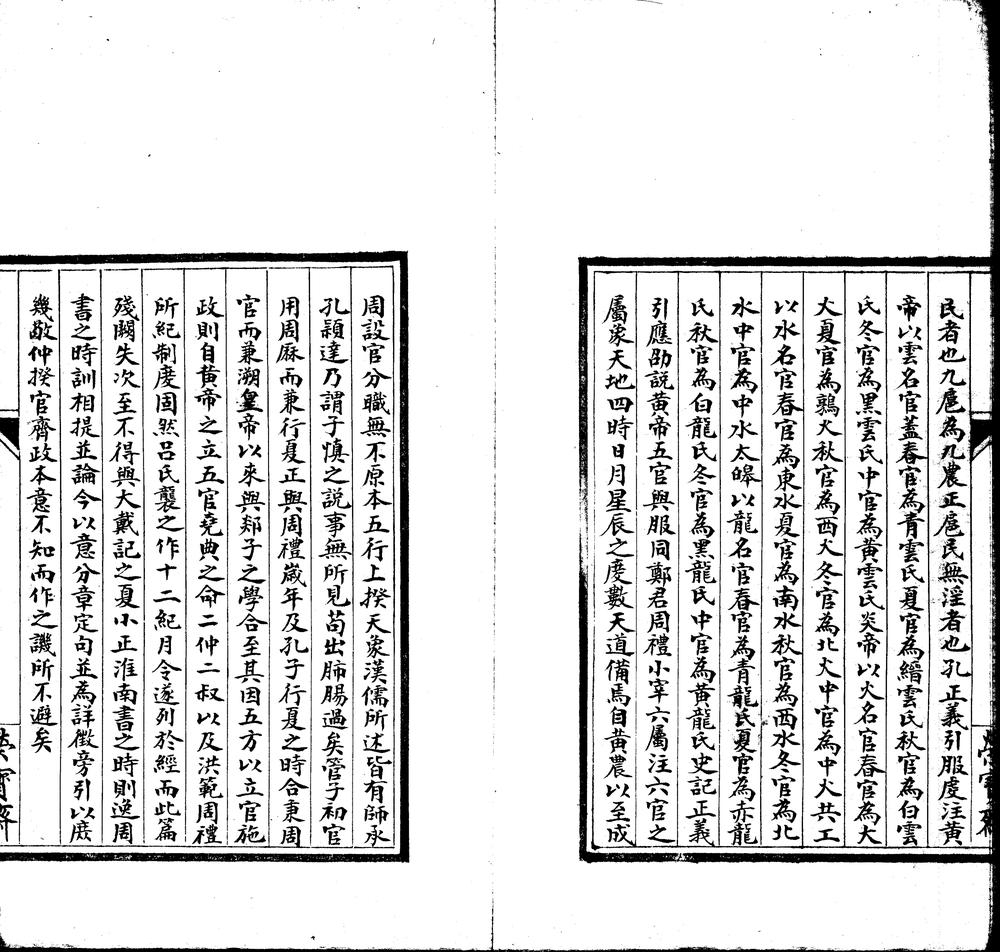 民者也九扈為九農正扈民無淫者也孔正義引服虔注黃
帝以雲名官蓋春官為青雲氏夏官為縉雲氏秋官為白雲
氏冬官為黑雲氏中官為黃雲氏炎帝以火名官春官為大
火夏官為鶉火秋官為西火冬官為北火中官為中火共工
以水名官春官為東水夏官為南水秋官為西水冬官為北
水中官為中水太皞以龍名官春官為青龍氏夏官為赤龍
氏秋官為白龍氏冬官為黑龍氏中官為黃龍氏史記正義
引應劭說黃帝五官與服同鄭君周禮小宰六屬注六官之
屬象天地四時日月星辰之度數天道備焉自黃農以至成
周設官分職無不原本五行上揆天象漢儒所述皆有師承
孔穎達乃謂子慎之說事無所見苟出肺腸過矣管子初官
用周厤而兼行夏正與周禮歲年及孔子行夏之時合秉周
官而兼溯皇帝以來與郯子之學合至其因五方以立官施
政則自黃帝之立五官堯典之命二仲二叔以及洪範周禮
所紀制度固然呂氏襲之作十二紀月令遂列於經而此篇
殘闕失次至不得與大戴記之夏小正淮南書之時則逸周
書之時訓相提並論今以意分章定句並為詳徵旁引以庶
幾敬仲揆官齊政本意不知而作之譏所不避矣
榮寶齋